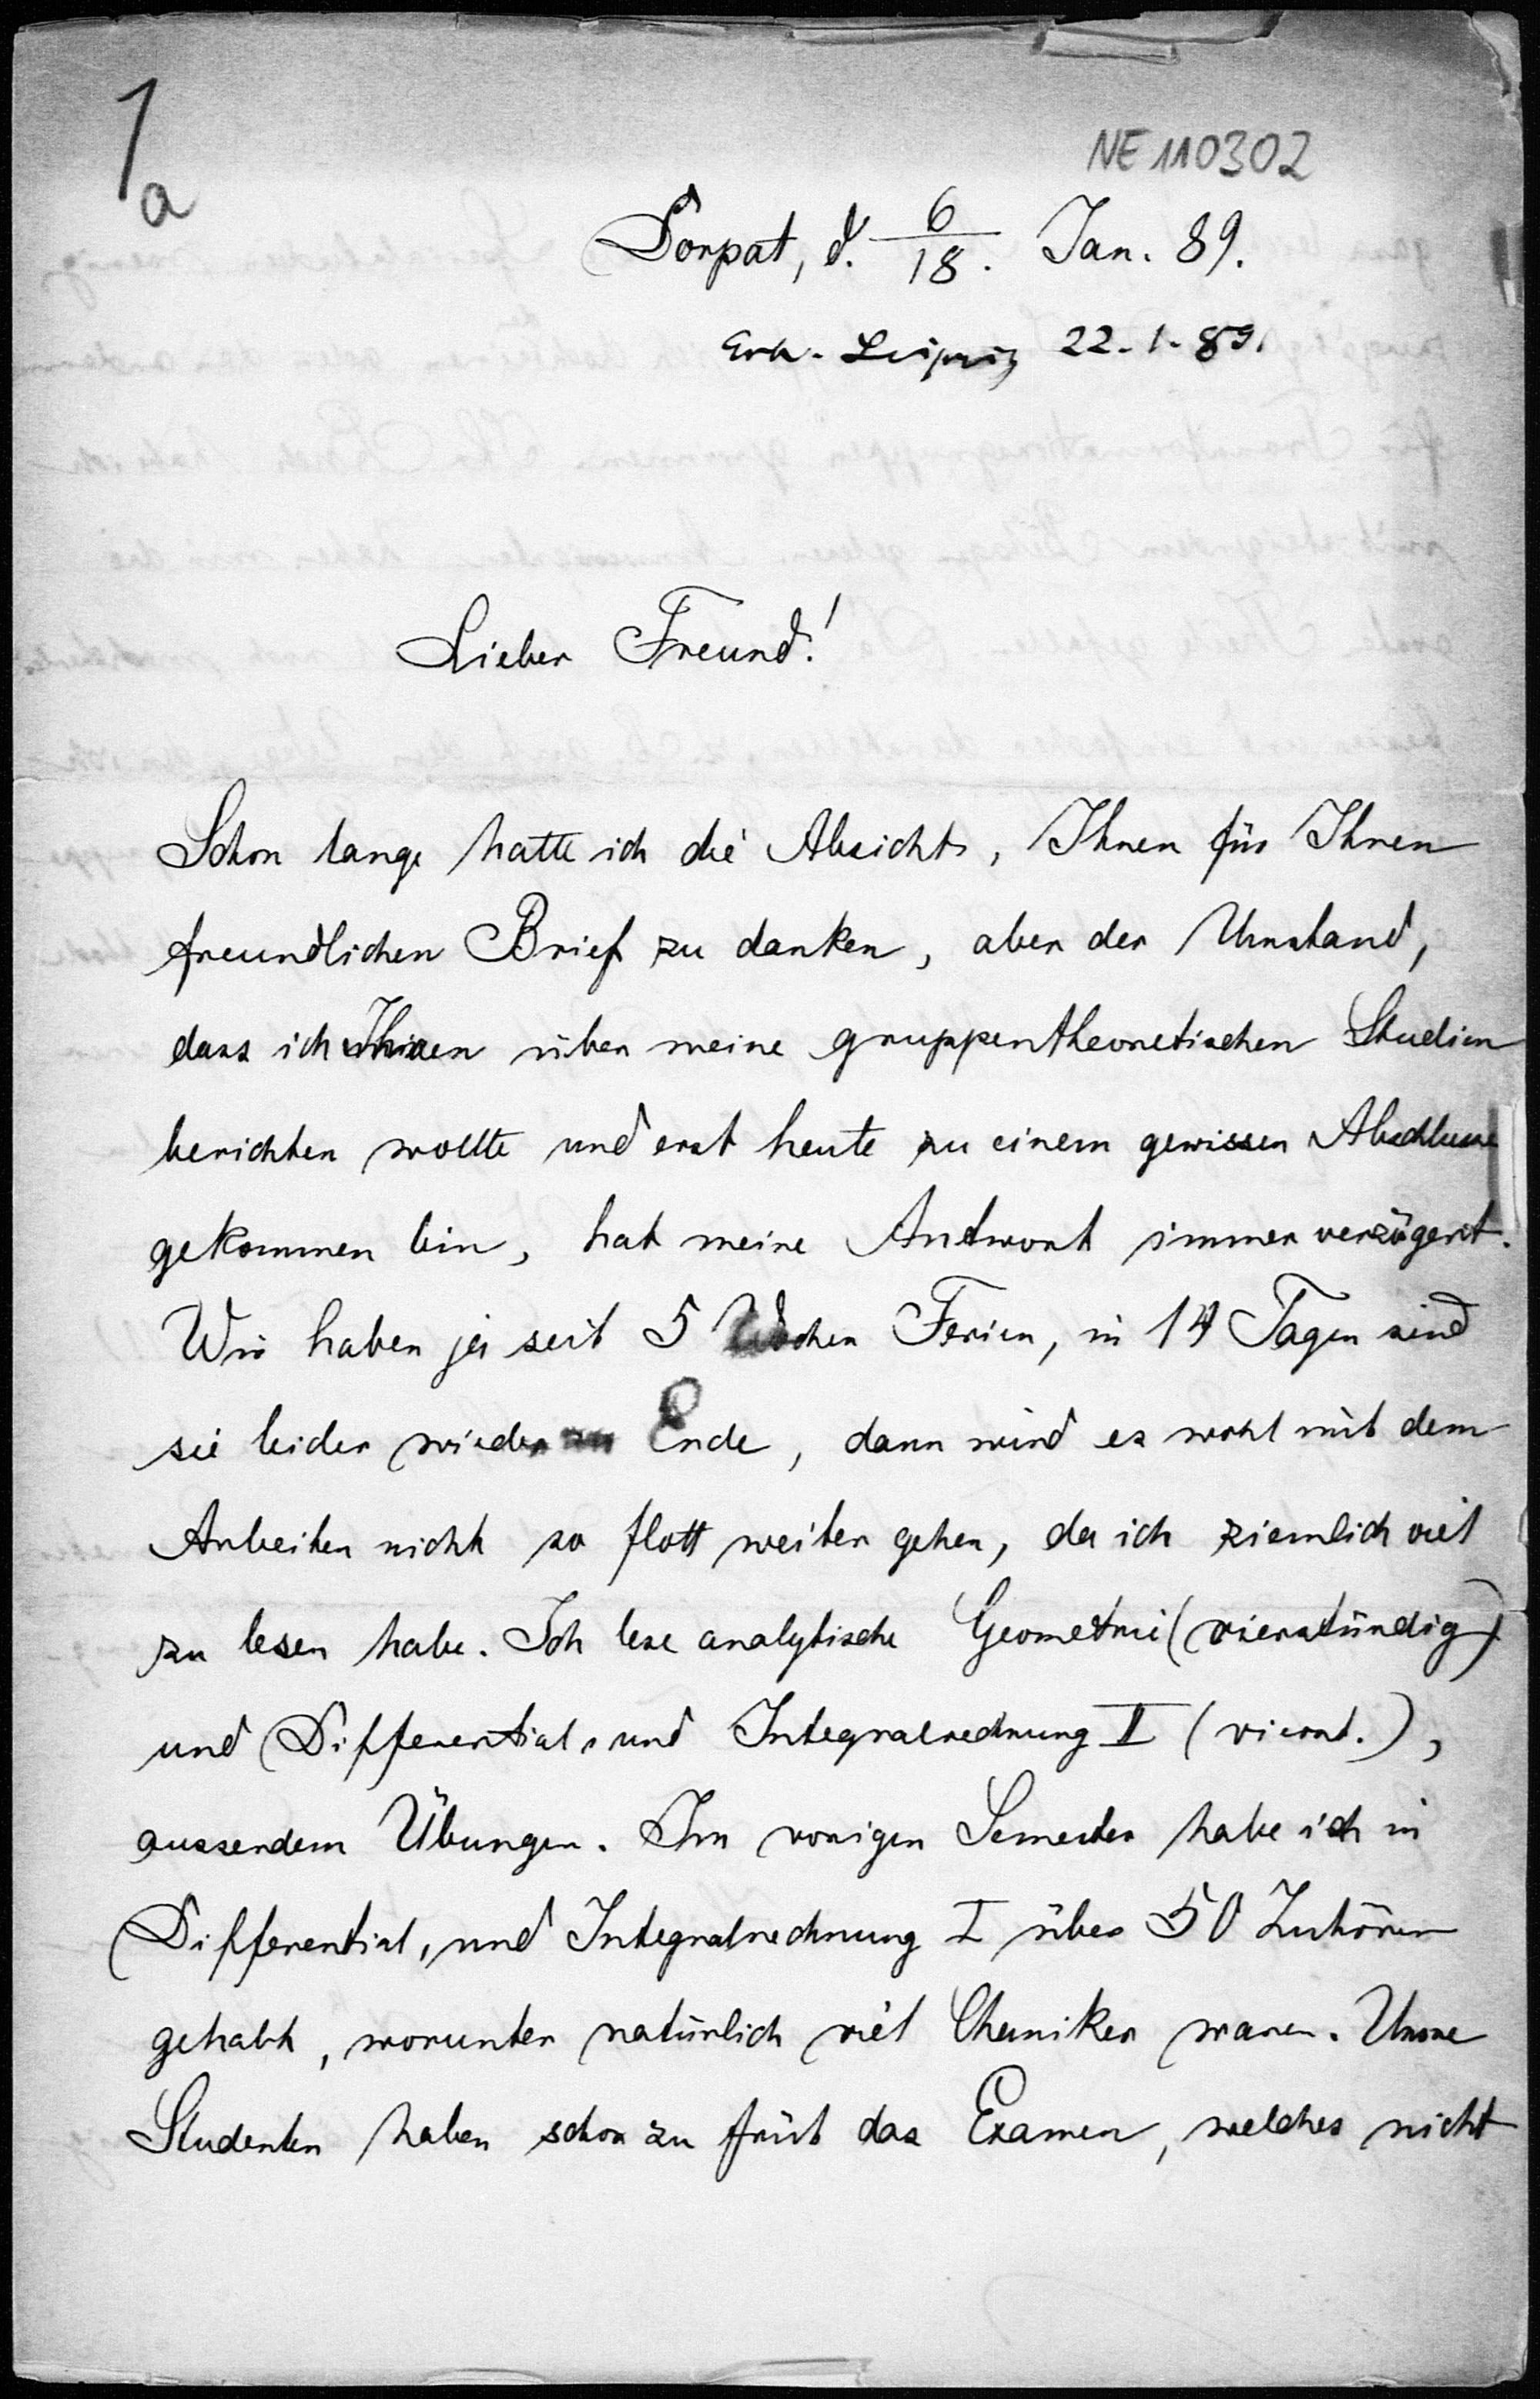 1a
NE 110302
Dorpat, d. 6/18. Jan. 89.
Erh. Leipzig 22-1-89.
Lieber Freund!
Schon lange hatte ich die Absicht, Ihnen für Ihren
freundlichen Brief zu danken, aber der Umstand,
dass ich Ihnen über meine gruppentheoretischen Studien
berichten wollte und erst heute zu einem gewissen Abschlusse
gekommen bin, hat meine Antwort immer verzögert.
Wir haben ja seit 5 Wochen Ferien, in 14 Tagen sind
sie leider wieder zu Ende, dann wird es wohl mit dem
Arbeiten nicht so flott weiter gehen, da ich ziemlich viel
zu lesen habe. Ich lese analytische Geometrie (vierstündig)
und Differential- und Integralrechnung II (vierst.),
ausserdem Übungen. Im vorigen Semester habe ich in
Differential- und Integralrechnung I über 50 Zuhörer
gehabt, worunter natürlich viel Chemiker waren. Unsre
Studenten haben schon zu früh das Examen, welches nicht